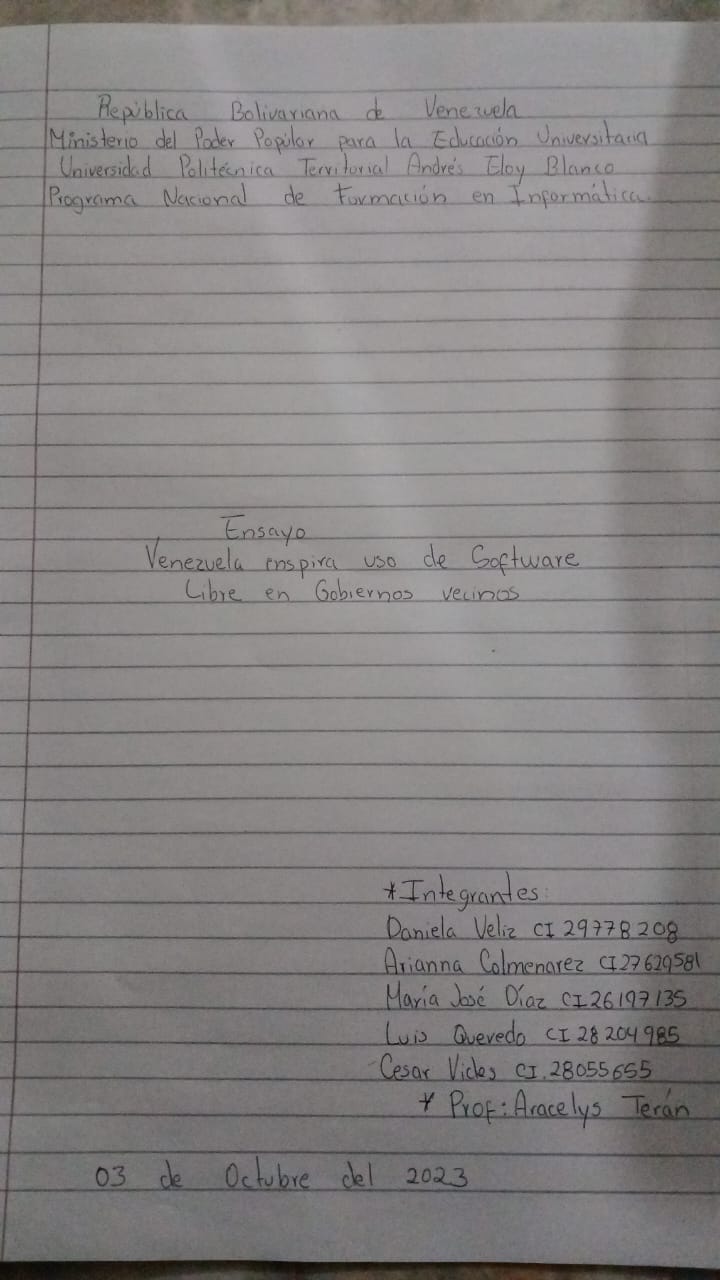 República Bolivariana de Venezuela
Ministerio del Poder Popular para la Educación Universitaria
Universidad Politécnica Territorial Andrés Eloy Blanco
Programa Nacional de Formación en Informática.
Ensayo
Venezuela inspira uso de Software
Libre en Gobiernos vecinos
*Integrantes:
Daniela Veliz CI 29778208
Arianna Colmenarez CI 27629581
María José Díaz CI 26197135
Luis Quevedo CI 28204985
Cesar CI. 28055655
* Prof: Aracelys Terán
03 de Octubre del 2023